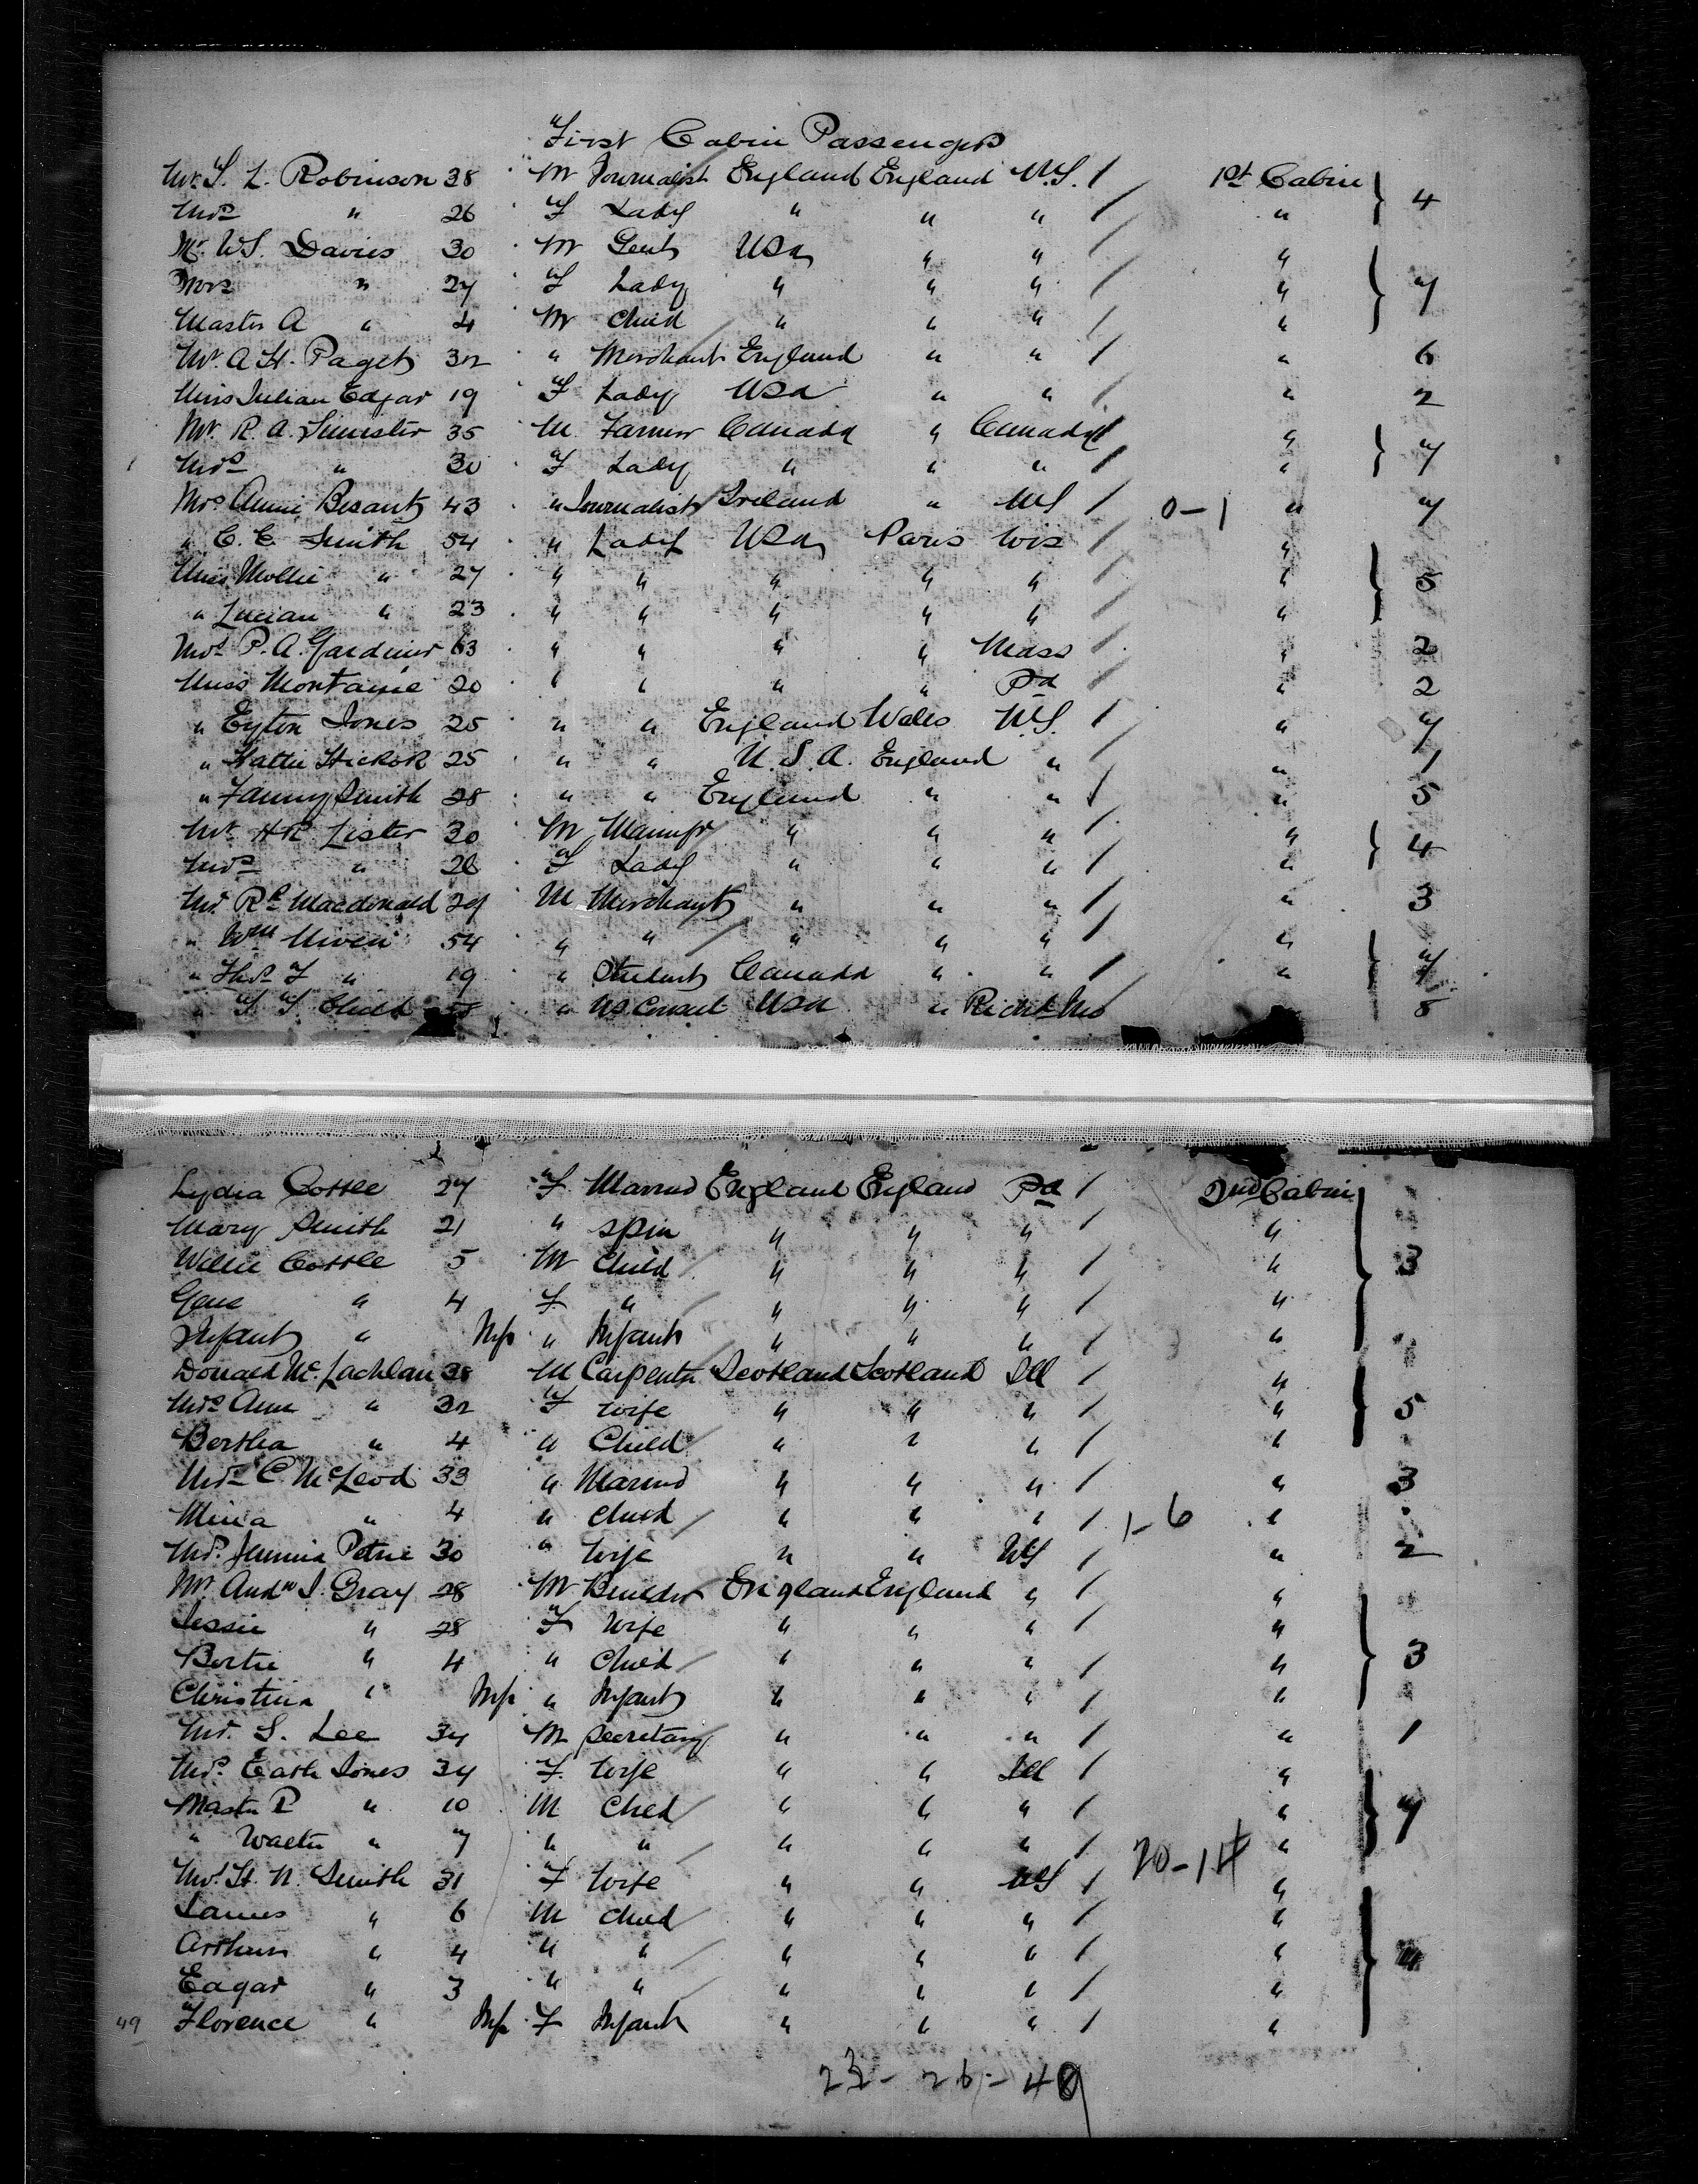 First Cabin Passengers
Mr. S. L. Robinson 38 M Journalist England England U.S. / 1st Cabin 4
Mrs " 26 F Lady " " " / "
Mr. W.S. Davies 30 M Gent USA " " / "
Mrs " 27 F Lady " " " / " 7
Master A " 4 M Child " " " / "
Mr. A. H. Paget 32 " Merchant England " " / " 6
Miss Julian Edgar 19 F Lady USA " " / " 2
Mr. R. A. Simister 35 M Farmer Canada " Canada / "
Mrs " 30 F Lady " " " / " 7
Mrs Annie Besant 43 " Journalist Ireland " US / 0-1 " 7
" C. C. Smith 54 " Lady USA Paris Wis / "
Miss Mollie " 27 " " " " " / " 5
" Lucian " 23 " " " " " / "
Mrs P. A. Gardiner 63 " " " " Mass / " 2
Miss Montanie 20 " " " " Pa / " 2
" Eyton Jones 25 " " England Wales U.S. / " 7
" Hattie Hickok 25 " " U.S.A. England " " 1
" Fanny Smith 28 " " England " " / " 5
Mr. HR. Lister 30 M Manufr " " " / " 4
Mrs " 26 F Lady " " " / "
Mr. Rt Macdonald 29 M Merchant " " " / " 3
" Wm Niven 54 " " " " " / "
" Thos F " 19 " Student Canada " " / " 7
" " US Consul USA " / 8
Lydia Cottle 27 F Married England England Pa / 2nd Cabin
Mary Smith 21 " Spin " " " / "
Willie Cottle 5 M Child " " " / " 3
" 4 F " " " " / "
Infant " Inf " Infant " " " / "
Donald McLachlan 38 M Carpenter Scotland Scotland Ill / "
Mrs Ann " 32 F Wife " " " / " 5
Bertha " 4 " Child " " " / "
Mrs C. McLeod 33 " Married " " " / " 3
Mina " 4 " Child " " " / 1-6 "
Mrs. Jemima Petrie 30 " Wife " " US / " 2
Mr. Andw J. Gray 28 M Builder England England " / "
Jessie " 28 F Wife " " " / "
Bertie " 4 " Child " " " / " 3
Christina " Inf " Infant " " " / "
Mr. S. Lee 34 M Secretary " " " / " 1
Mrs. Cath Jones 34 F. Wife " " Ill / "
Master R " 10 M Child " " " / " 7
" Walter " 7 " " " " " / "
Mrs. H. N. Smith 31 F Wife " " US / 20-14 "
James " 6 M Child " " " / "
Arthur " 4 " " " " " / " 4
Edgar " 3 " " " " " / "
49 Florence " Inf F Infant " " " / "
23-26-49